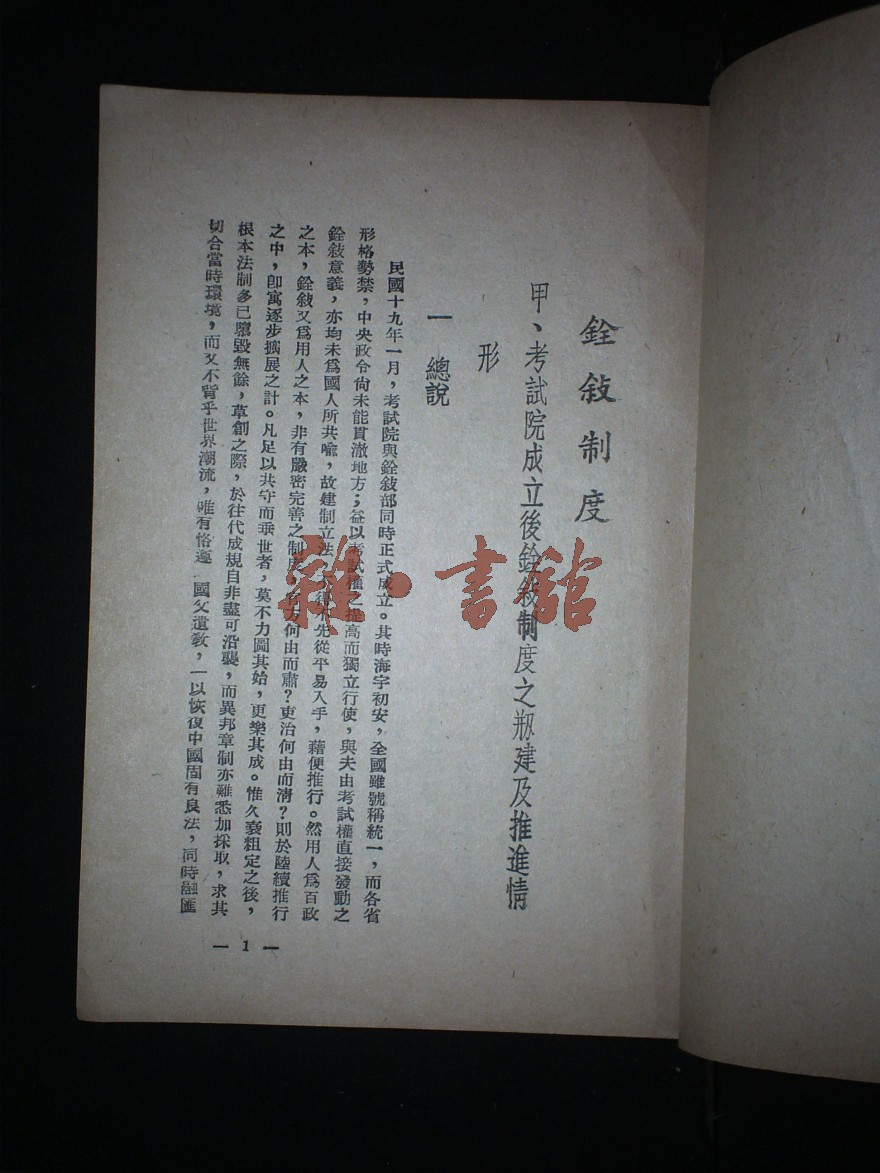 銓敍制度
甲、考試院成立後銓敍制度之剏建及推進情
形
一 總說
民國十九年一月，考試院與銓敍部同時正式成立。其時海宇初安，全國雖號稱統一，而各省
形格勢禁，中央政令尙未能貫澈地方；益以考試權之提高而獨立行使，與夫由考試權直接發動之
銓敍意義，亦均未爲國人所共喩，故建制立法，不得不先從平易入手，藉便推行。然用人爲百政
之本，銓敍又爲用人之本，非有嚴密完善之制度，官方何由而肅？吏治何由而淸？則於陸續推行
之中，卽寓逐步擴展之計。凡足以共守而垂世者，莫不力圖其始，更樂其成。惟久衰粗定之後，
根本法制多已隳毀無餘，草創之際，於往代成規自非盡可沿襲，而異邦章制亦難悉加採取，求其
切合當時環境，而又不背乎世界潮流，唯有恪遵 國父遺敎，一以恢復中國固有良法，同時融匯
— 1 —
雜·書館